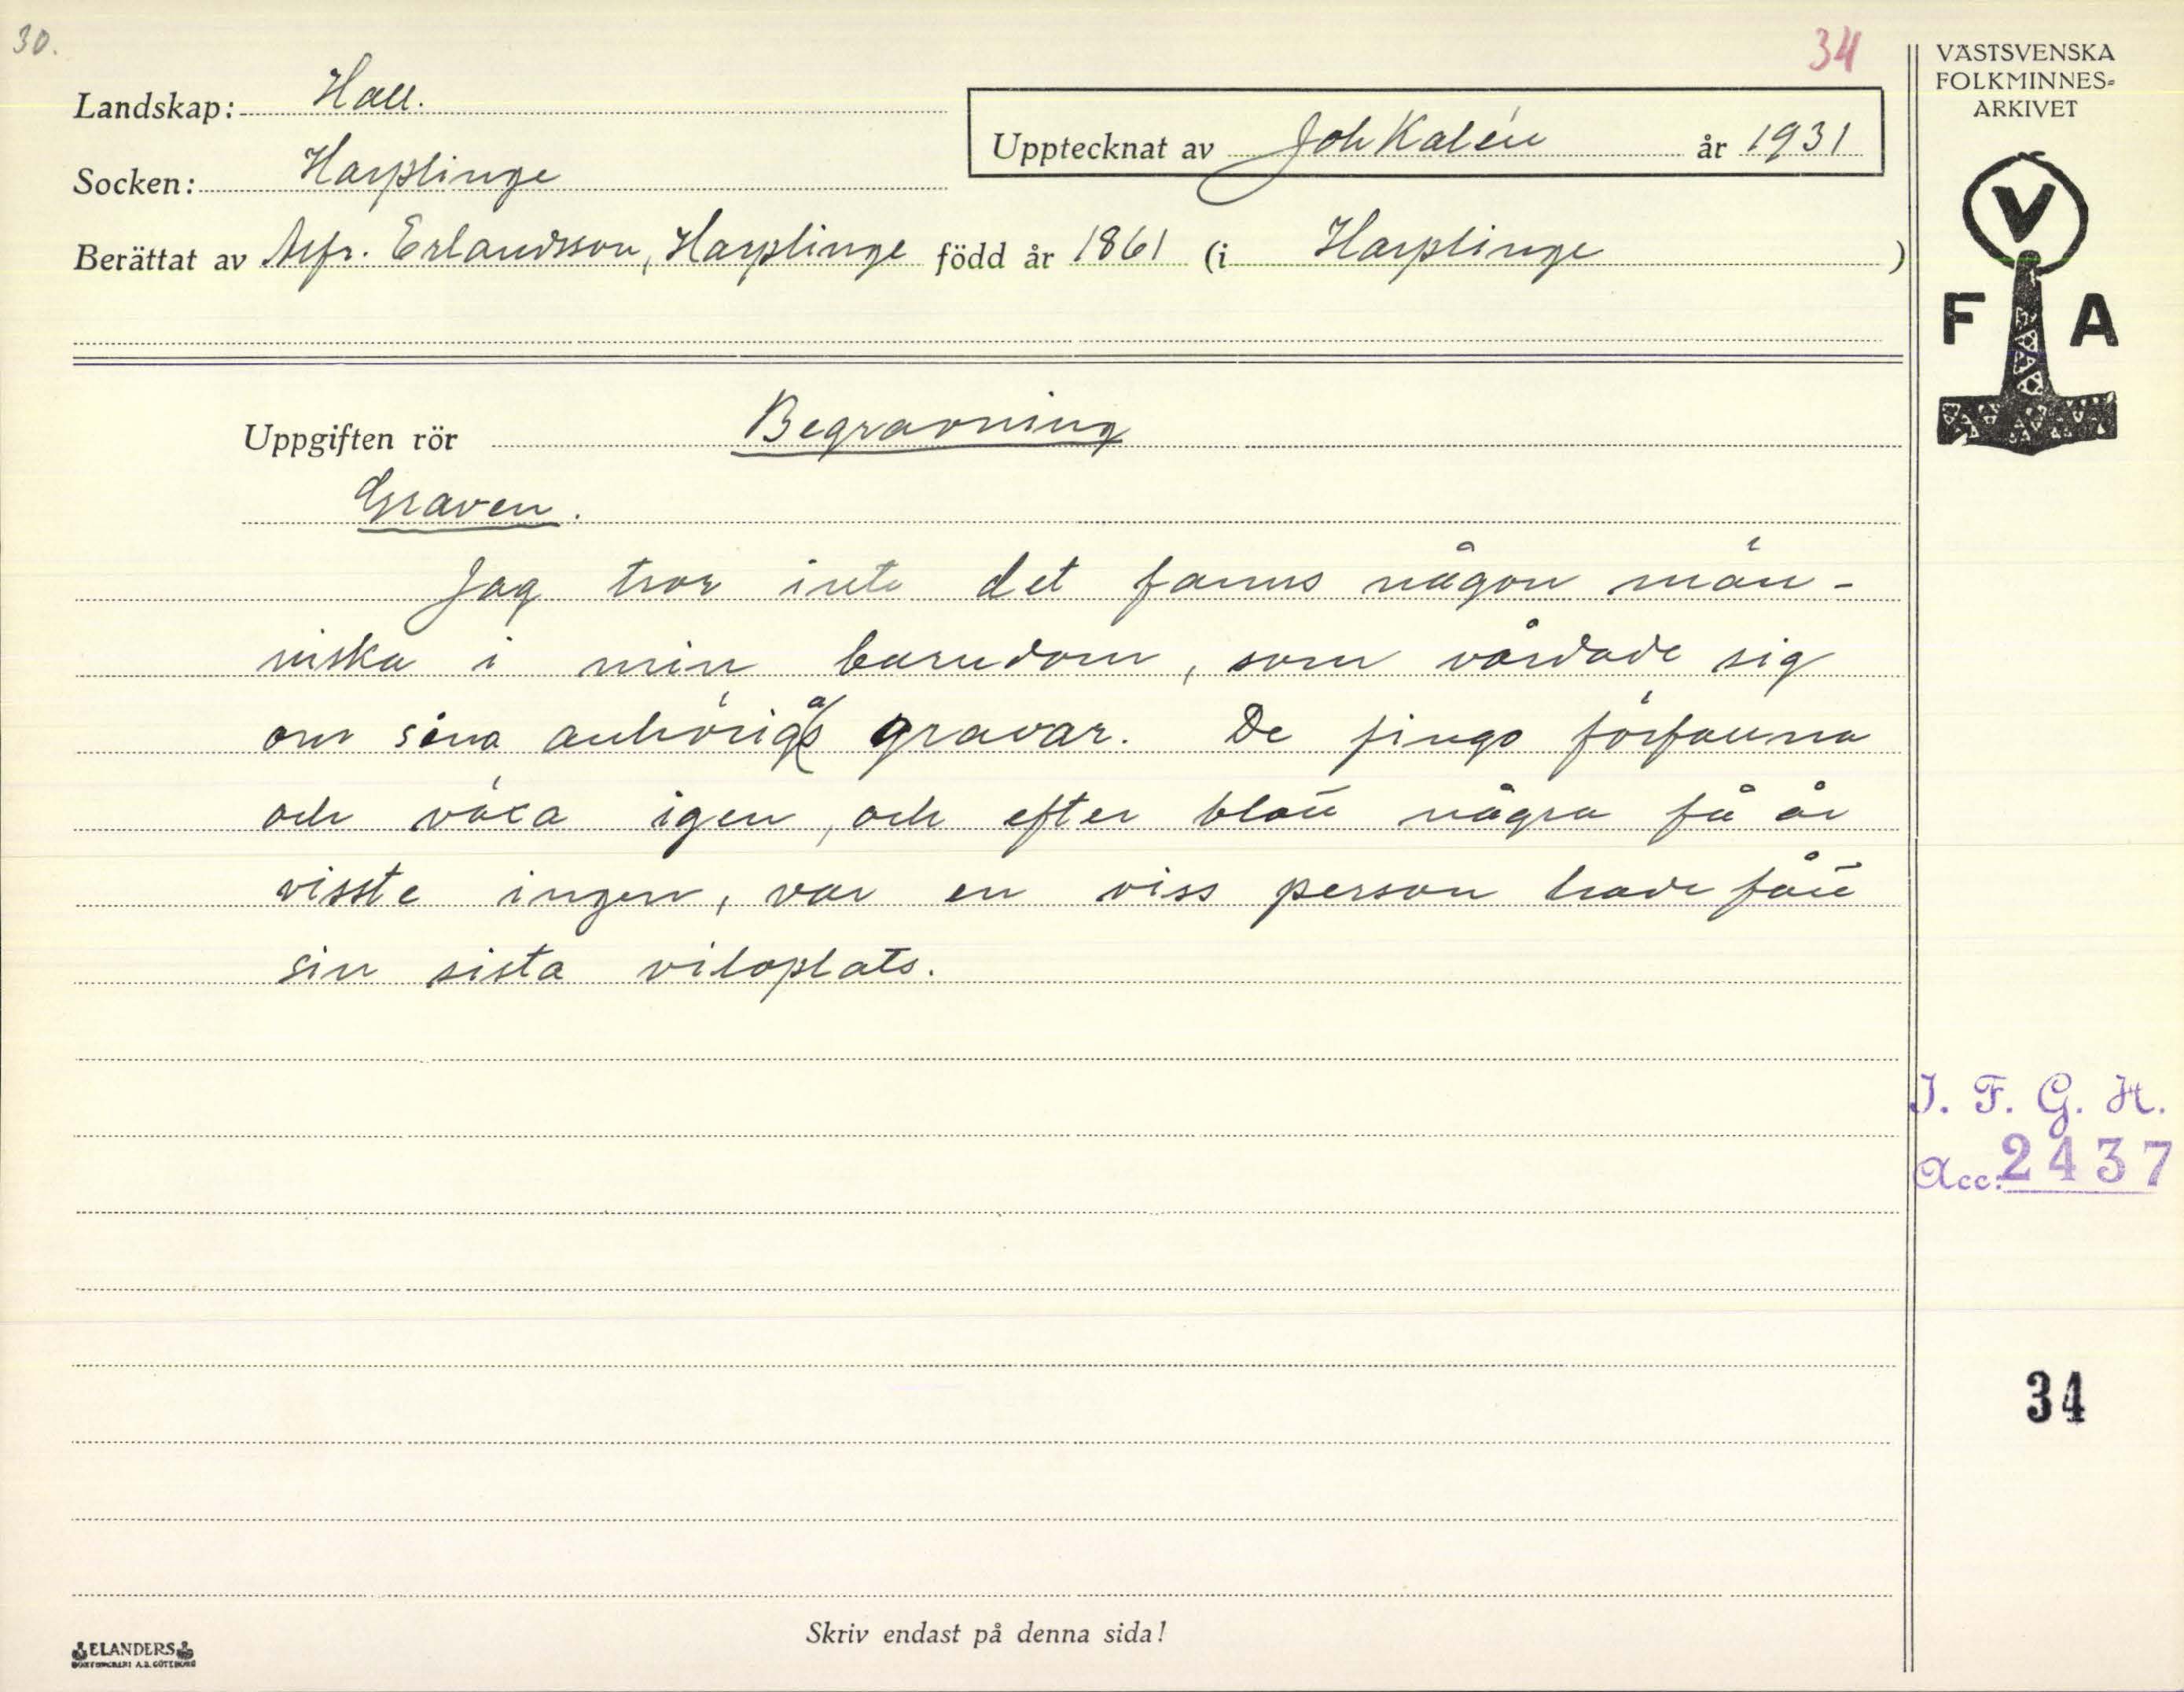 30.
34
Landskap: Hall.
Upptecknat av Joh Kalén år 1931
Socken: Harplinge
Berättat av Alfr. Erlandsson, Harplinge född år 1861 (i Harplinge )
VÄSTSVENSKA
FOLKMINNES-
ARKIVET
V
F A
Uppgiften rör Begravning
Graven.
Jag tror inte det fanns någon män-
niska i min barndom, som vårdade sig
om sina anhörigas gravar. De fingo förfanna
och växa igen, och efter blott några få år
visste ingen, var en viss person hade fått
sin sista viloplats.
I. F. G. H.
Acc. 2437
34
Skriv endast på denna sida!
ELANDERS
BOKTRYCKERI A.B. GÖTEBORG